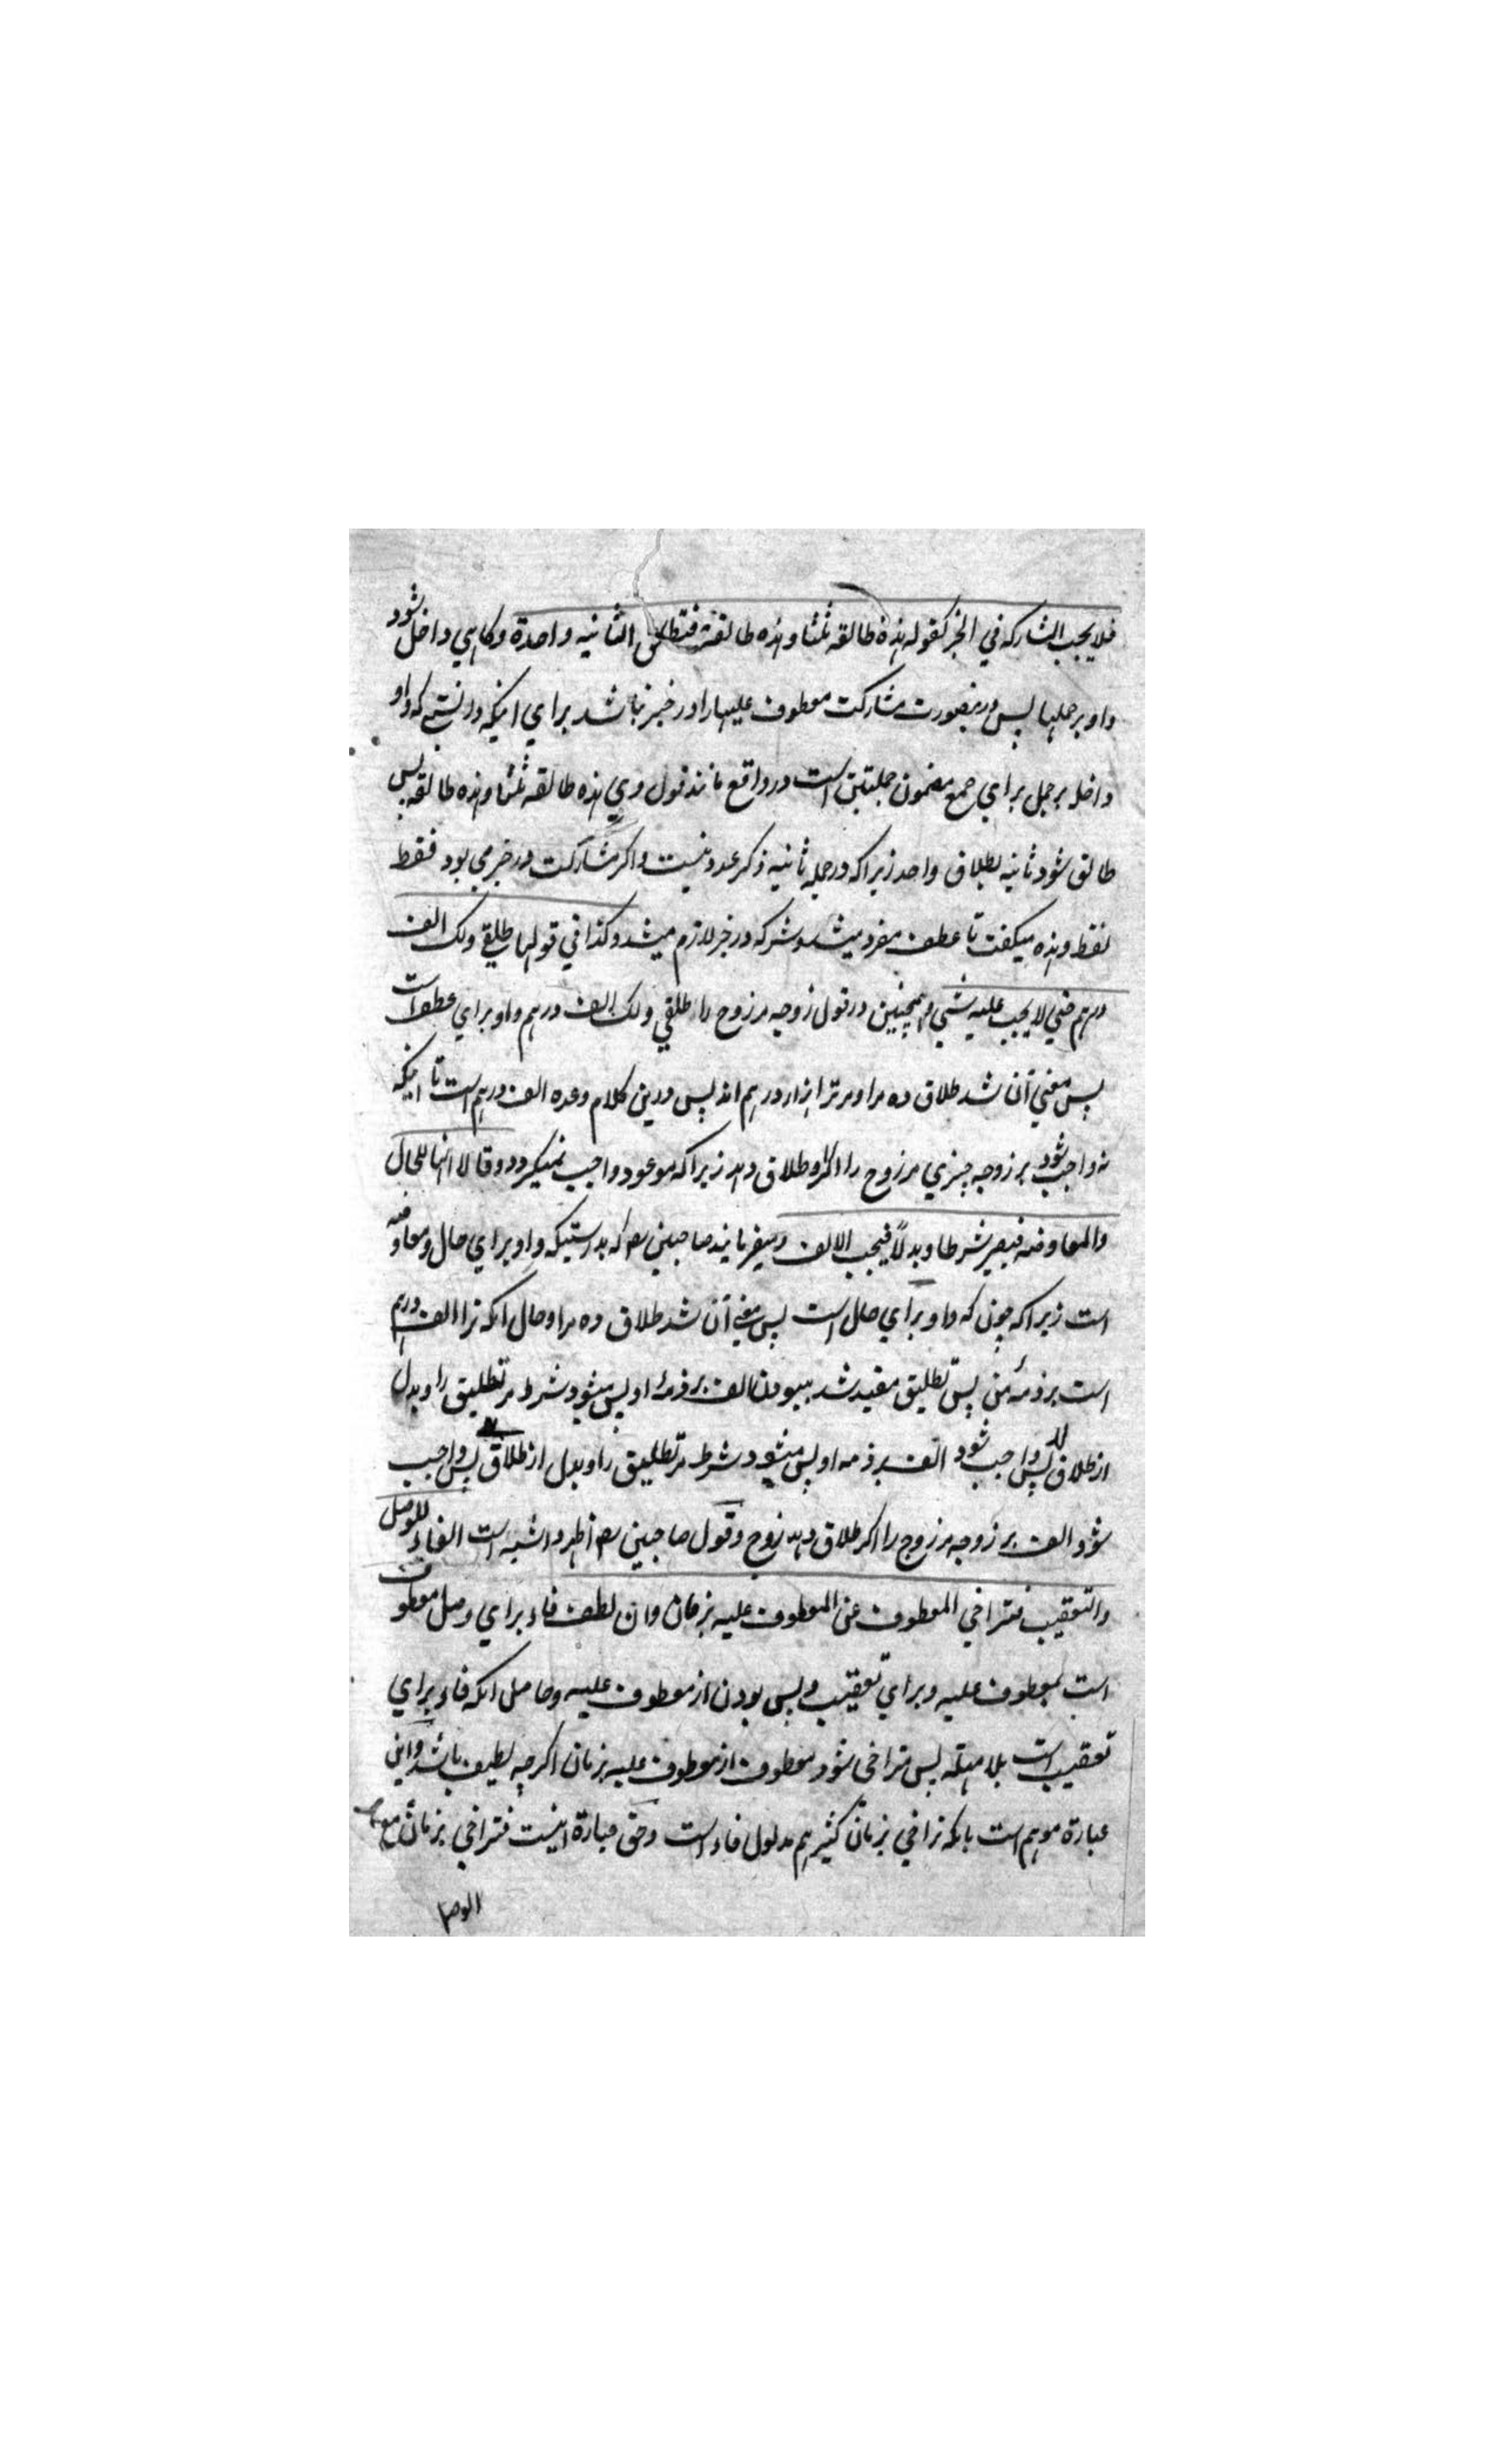 فلا یجب المشارکه في الخبر کقوله هذه طالقه ثلثا وهذه طالقة فتطلق الثانیه واحدة وکاهي داخل شود
واو بر جملها پس درینصورت مشارکت معطوف علیها را در خبر نباشد براي اینکه دانستی که واو
داخله بر جمل براي جمع مضمون جملتین است در واقع مانند قول وي هذه طالقه ثلثا وهذه طالقه پس
طالق شود ثانیه بطلاق واحد زیرا که در جمله ثانیه ذکر عدد نیست واکر مشارکت در خبر می بود فقط
لفظ وهذه میکفت تا عطف مفرد میشد وشرکه در خبر لازم میشد وکذا في قولها طلقني ولک الف
درهم حتي لا یجب علیه شي وهمچنین در قول زوجه مر زوج را طلقني ولک الف درهم واو براي عطف است
پس معني آن شد طلاق ده مرا ومر ترا هزار درهم اند پس درین کلام وعده الف درهم است تا اینکه
نه واجب شود بر زوجه چیزي مر زوج را اکر او طلاق دهد زیرا که موعود واجب نمیکردد وقالا انها للحال
والمعاوضه فیصیر شرطا وبدلاً فیجب الالف ومیفرمایند صاحبین رح که بدرستیکه واو براي حال ومعاوضه
است زیرا که چون که واو براي حال است پس معني آن شد طلاق ده مرا وحال انکه ترا الف درهم
است بر ذمهٔ من پس تطلیق مقید شد ببودن الف بر ذمهٔ او پس میشود شرط مر تطلیق را وبدل
از طلاق پس واجب شود الف بر ذمه او پس میشود شرط مر تطلیق را وبدل از طلاق پس واجب
شود الف بر زوجه مر زوج را اکر طلاق دهد زوج وقول صاحبین رح اظهر واشبه است الفاء للوصل
والتعقیب فتراخي المعطوف عن المعطوف علیه بزمان وان لطف فاء براي وصل معطوف
است بمعطوف علیه وبراي تعقیب وپس بودن از معطوف علیه وحاصل انکه فاء براي
تعقیب است بلا مهلة پس متراخی شود معطوف از معطوف علیه بزمان اکرچه لطیف باشد واین
عبارة موهم است بانکه تراخي بزمان کثیر هم مدلول فاء است وحق عبارة اینست فتراخي بزمان مع
الوصل